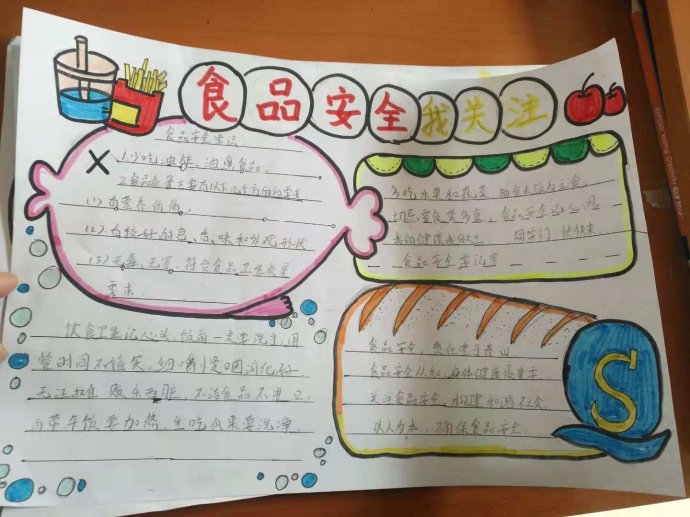 食品安全我关注
食品安全常识:
1.少吃油炸、油腻食品。
2.食品质量主要有以下几个方面的要求
(1)有营养价值。
(2)有较好的色、香、味和外观形状
(3)无毒、无害,符合食品卫生质量
要求.
多吃水果和蔬菜,四食米饭为主食,
食品安全
我的健康我做主. 同学们快快来.
食品安全要记牢
饮食卫生记心头,饭前一定要洗手,用
餐时间不搞笑,细嚼慢咽消化好.
无证摊贩 不洁食品不
自带午饭要加热,生吃瓜果要洗净.
食品安全,责任重于泰山
食品安全从 身体健康最重要
关注食品安全,构建和谐社会.
以人为本,确保食品安全.
S